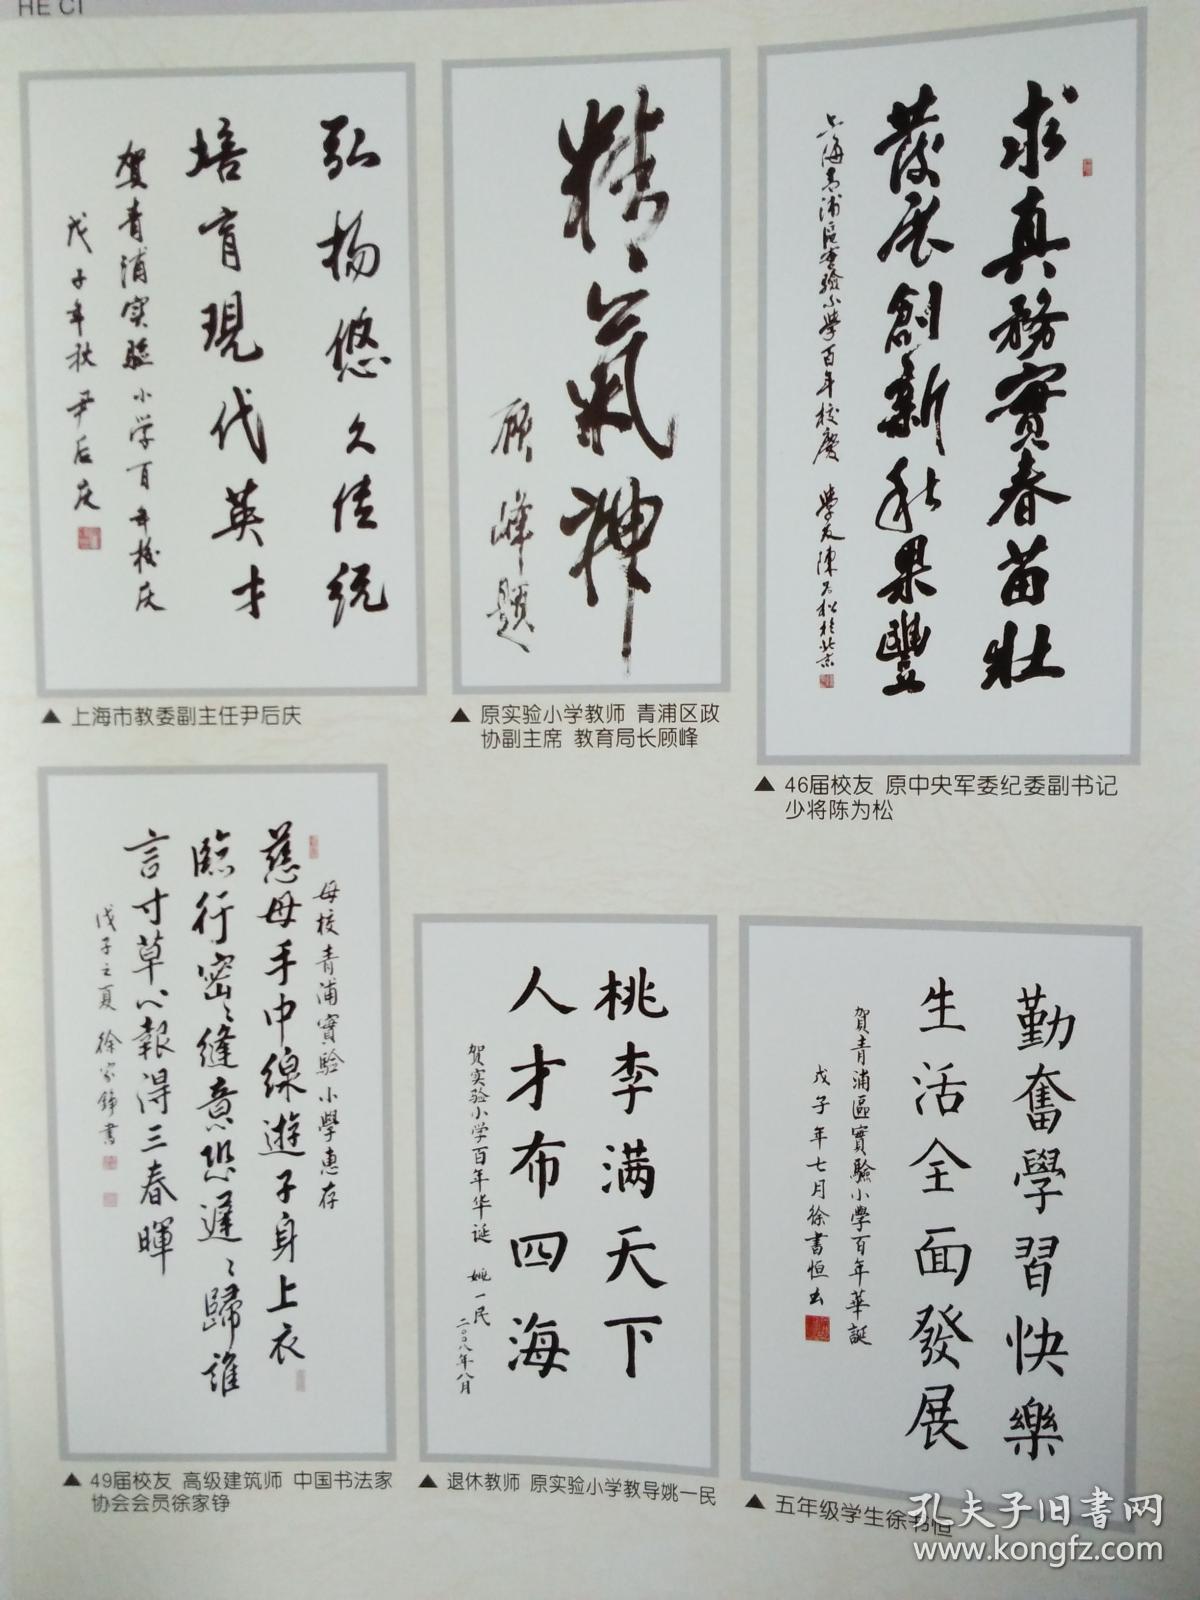 HE CI
弘扬悠久传统
培育現代英才
贺青浦实验小学百年校庆
戊子年秋 尹后庆
▲ 上海市教委副主任尹后庆
精氣神
顾峰題
▲ 原实验小学教师 青浦区政
协副主席 教育局长顾峰
求真務實春苗壮
發展創新秋果豐
上海青浦区實验小學百年校慶 學友陳为松於北京
▲ 46届校友 原中央军委纪委副书记
少将陈为松
母校青浦實驗小學惠存
慈母手中線遊子身上衣
臨行密密縫意恐遲遲歸誰
言寸草心報得三春暉
戊子之夏 徐家錚書
▲ 49届校友 高级建筑师 中国书法家
协会会员徐家铮
桃李满天下
人才布四海
贺实验小学百年华诞 姚一民
二〇〇八年八月
▲ 退休教师 原实验小学教导姚一民
勤奮學習快樂
生活全面發展
賀青浦區實驗小學百年華誕
戊子年七月徐書恒书
▲ 五年级学生徐书恒
孔夫子旧书网
www.kongfz.com